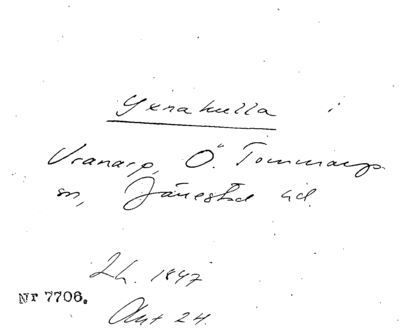 Yxnakulla i
Vranarp, Ö. Tommarps
sn, Järrestad hd.
Lh. 1847
Nr 7706.
Akt 24.